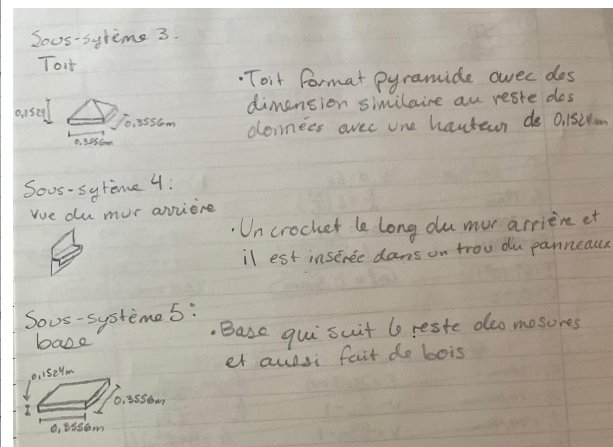 Sous-sytème 3.
Toit
0,1524
0,3556m
0,3556m
• Toit format pyramide avec des
dimension similaire au reste des
données avec une hauteur de 0,1524m
Sous-sytème 4:
Vue du mur arrière
• Un crochet le long du mur arrière et
il est insérée dans un trou du panneaux
Sous-système 5:
base
• Base qui suit le reste des mesures
et aussi fait de bois
0,1524m
0.3556m
0,3556m